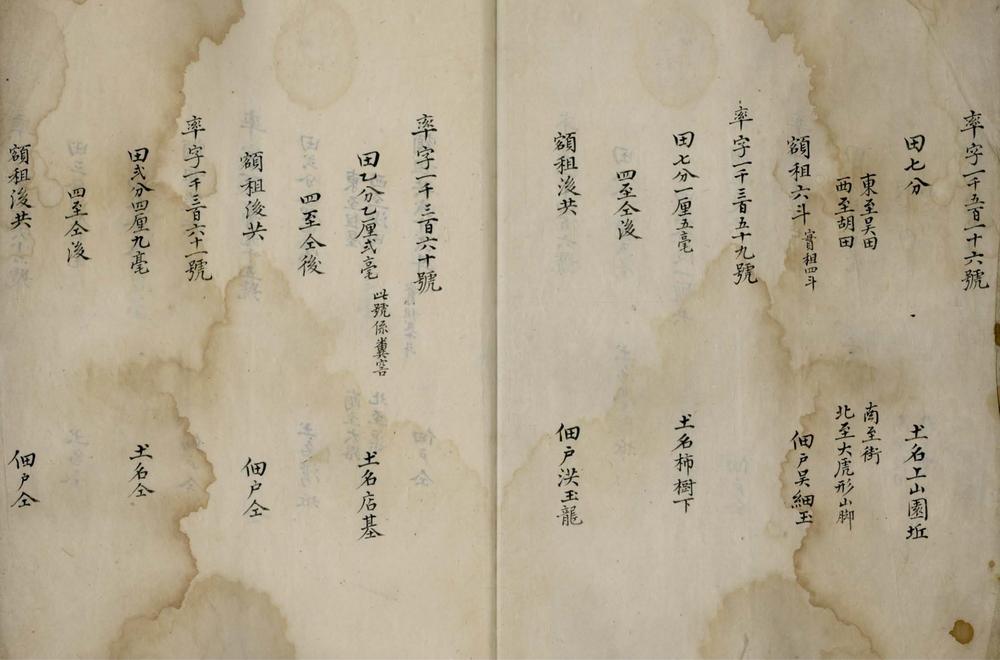 率字一千五百一十六號
田七分
土名上山園坵
東至吴田
西至胡田
南至街
北至大虎形山脚
額租六斗 實租四斗
佃户吴細玉
率字一千三百五十九號
田七分一厘五毫
土名柿樹下
四至仝後
額租後共
佃户洪玉龍
率字一千三百六十號
田乙分乙厘弍毫 此號係糞窖
土名店基
四至仝後
額租後共
佃户仝
率字一千三百六十一號
田弍分四厘九毫
土名仝
四至仝後
額租後共
佃户仝